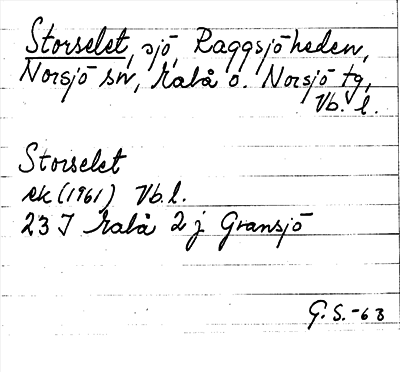 Storselet, sjö, Raggsjöheden,
Norsjö sn, Malå o. Norsjö tg,
Vb. l.
Storselet
ek (1961) Vb. l.
23 J Malå 2 j Gransjö
G. S. -63